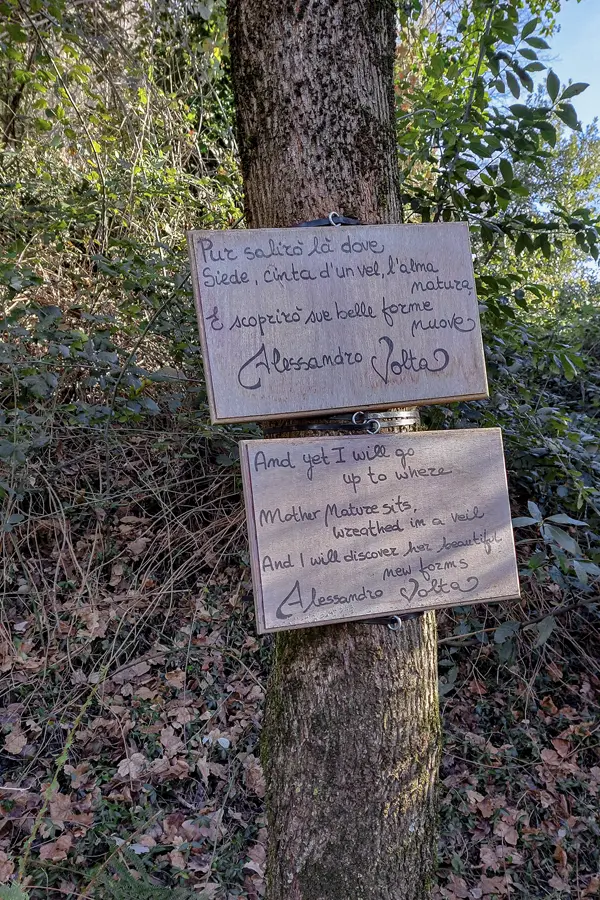 Pur salirò là dove
Siede, cinta d'un vel, l'alma
natura,
E scoprirò sue belle forme
nuove
Alessandro Volta
And yet I will go
up to where
Mother Nature sits,
wreathed in a veil
And I will discover her beautiful
new forms
Alessandro Volta